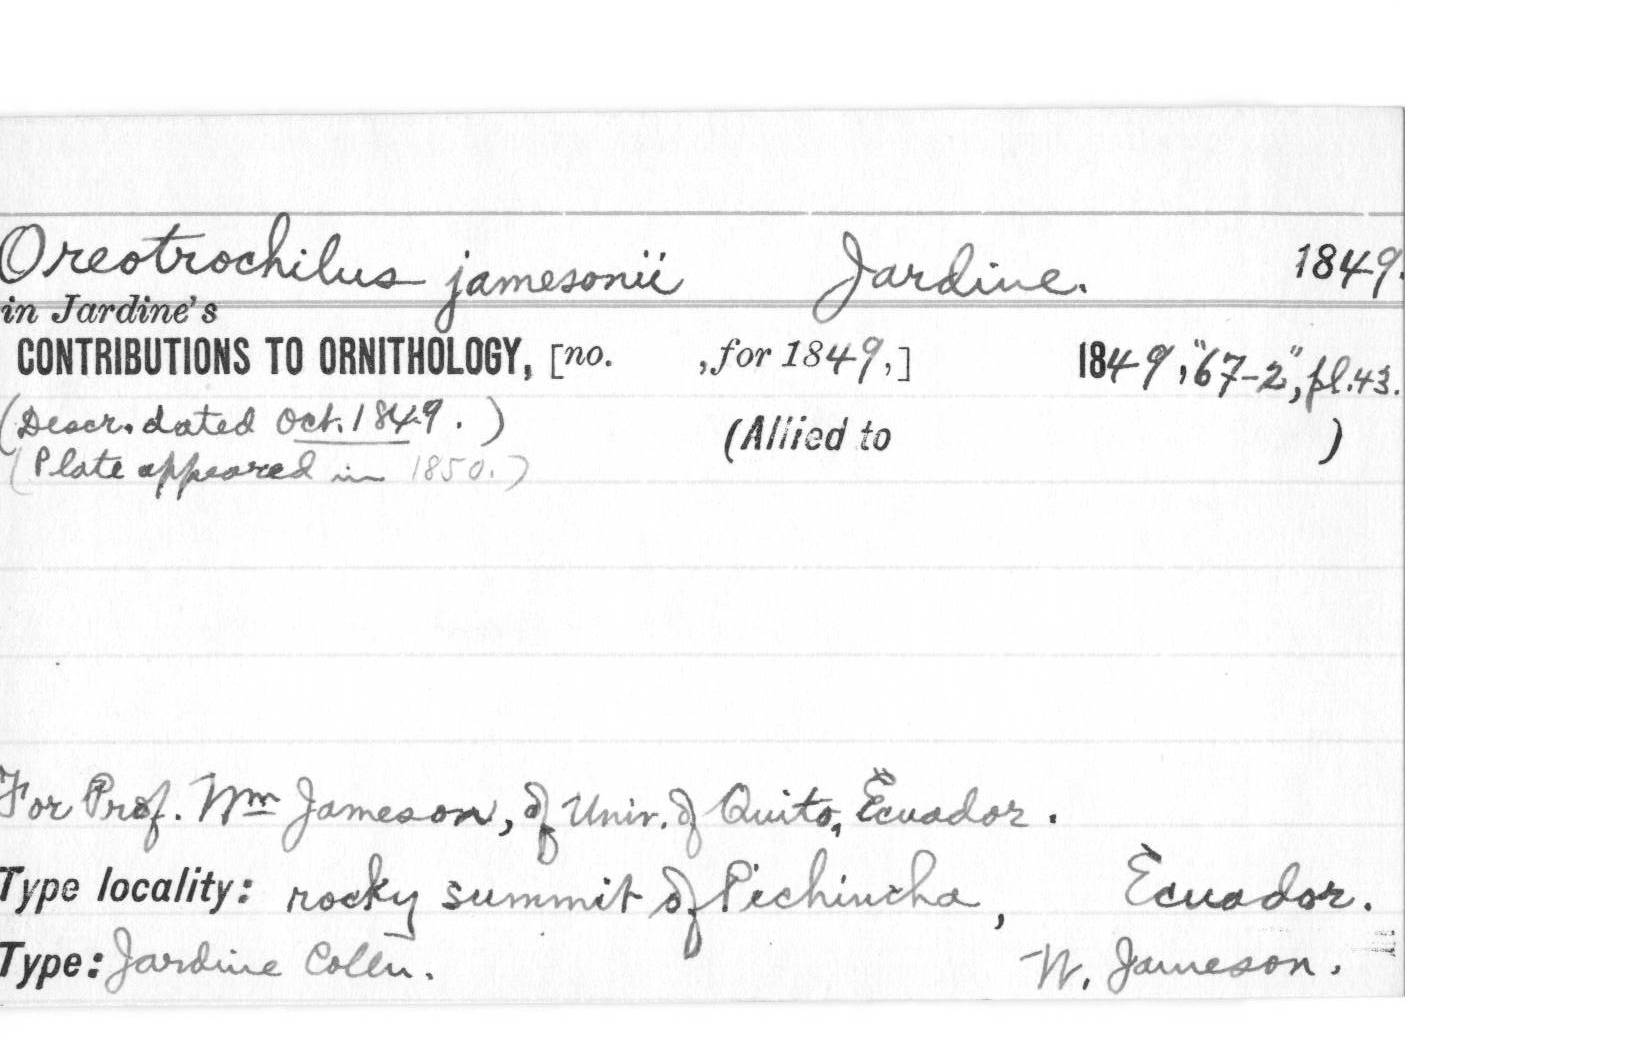 Oreotrochilus jamesonii Jardine. 1849.
in Jardine's
CONTRIBUTIONS TO ORNITHOLOGY, [no. , for 1849,] 1849, "67-2", pl.43.
(Descr. dated Oct. 1849.) (Allied to )
(Plate appeared in 1850.)
For Prof. Wm Jameson, of Univ. of Quito, Ecuador.
Type locality: rocky summit of Pichincha, Ecuador.
Type: Jardine Colln. W. Jameson.